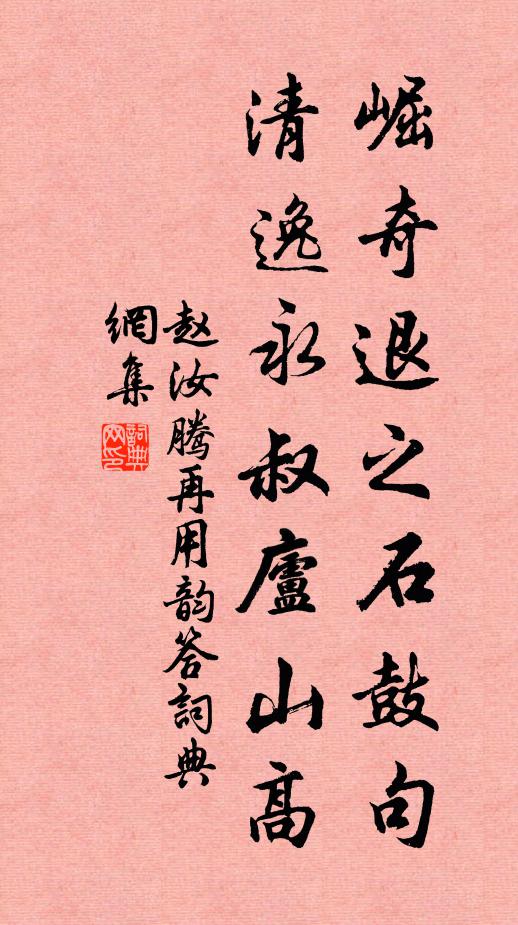 崛奇退之石鼓句
清逸永叔廬山高
赵汝腾再用韵答詞典
網集
詞典網印